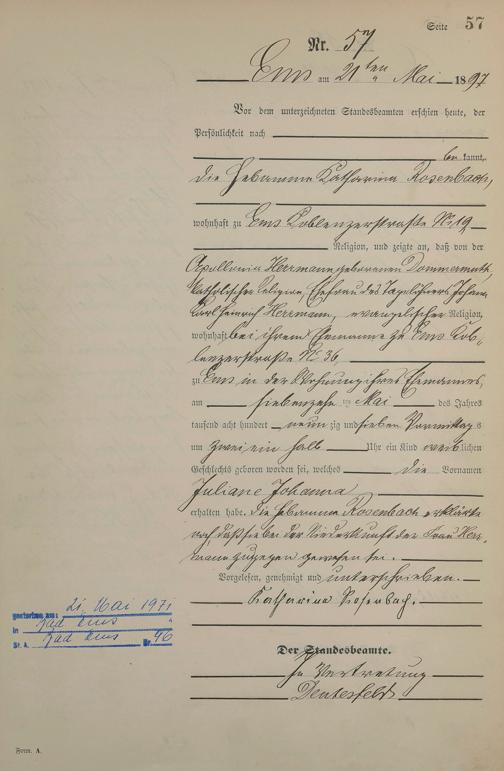 Seite 57
Nr. 57
Ems am 21ten Mai 1897
Vor dem unterzeichneten Standesbeamten erschien heute, der
Persönlichkeit nach
be kannt,
die Hebamme Katharina Rosenbach,
wohnhaft zu Ems Koblenzerstraße No 19
Religion, und zeigte an, daß von der
Apollonia Herrmann geborenen Dommermuth,
katholischer Religion, Ehefrau des Tagelöhners Johann
Karl Heinrich Herrmann, evangelischer Religion,
wohnhaft bei ihrem Ehemanne zu Ems Kob-
lenzerstraße No 36,
zu Ems in der Wohnung ihres Ehemannes,
am siebenzehn ten Mai des Jahres
tausend acht hundert neun zig und sieben Vormittag s
um zwei ein halb Uhr ein Kind weib lichen
Geschlechts geboren worden sei, welches die Vornamen
Juliane Johanna
erhalten habe. Die Hebamme Rosenbach erklärte
noch, daß sie bei der Niederkunft der Frau Herr-
mann zugegen gewesen sei.
Vorgelesen, genehmigt und unterschrieben.
Katharina Rosenbach.
Der Standesbeamte.
In Vertretung
gestorben am: 21. Mai 1971
in Bad Ems
St. A. Bad Ems Nr. 46
Form. A.